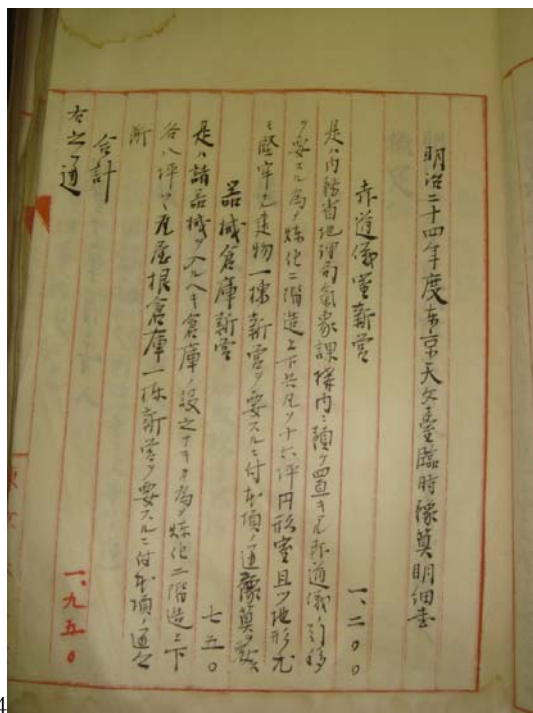 明治二十四年度东京天文臺臨時豫算明細書
赤道儀室新営
一、二〇〇
是ハ内務省地理局氣象課構内ニ預ケ置キタル赤道儀ノ引移
ヲ要スル為メ煉化二階造上下共凡ソ十六坪円形室且ツ地形尤
モ堅牢ニ建物一棟新営ヲ要スルニ付本項ノ通豫算ヲ要ス
器械倉庫新営
七五〇
是ハ諸器械ヲ入ルヘキ倉庫ノ設之ナキカ為メ煉化二階造上下
各八坪ツヽ瓦屋根倉庫一棟新営ヲ要スルニ付本項ノ通
合計
一、九五〇
右之通
4